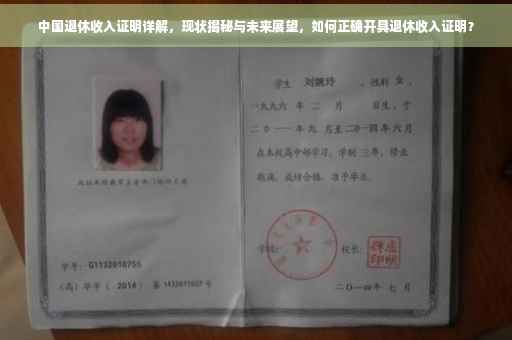 中国退休收入证明详解，现状揭秘与未来展望，如何正确开具退休收入证明？
学生 刘婉玲 ，性别 女 ，
一九九六 年 二 月 日生，于
二〇一一 年 九 月至 二〇一四 年 六 月
在本校高中部学习，学制 三 年，修业
期满，成绩合格，准予毕业。
学号： G1132010755
校长：
(高) 毕字 ( 2014 ) 第 1432011027 号
二〇一四年 七 月